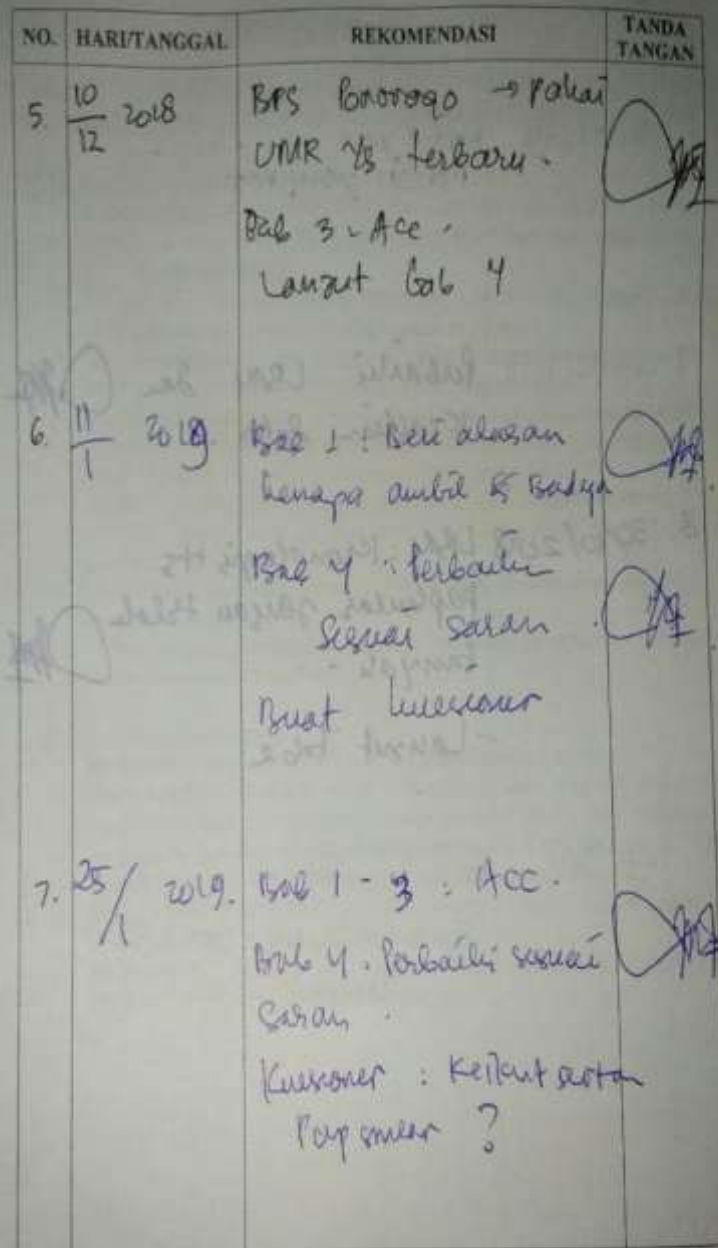 NO. HARI/TANGGAL REKOMENDASI TANDA TANGAN
5. 10/12 2018 BPS Ponorogo → pakai
UMR yg terbaru.
Bab 3 - Acc.
Lanjut bab 4
6. 11/1 2019 Bab 1 : Beri alasan
kenapa ambil
Bab 4 : Perbaiki
sesuai saran
Buat kuesioner
7. 25/1 2019. Bab 1 - 3 : ACC.
Bab 4. Perbaiki sesuai
saran.
Kuesioner : Keikutsertaan
Pap smear ?